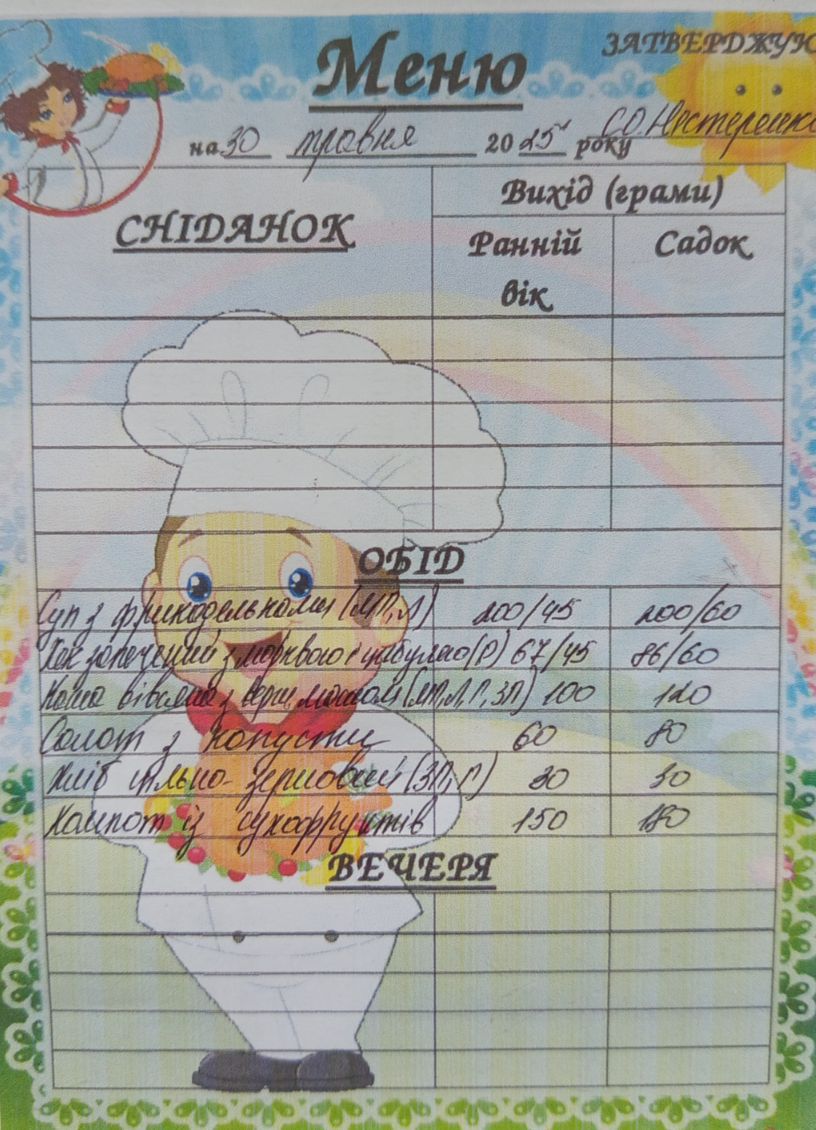 ЗАТВЕРДЖУЮ
Меню
С.О. Нестеренко
на 30 травня 2025 року
СНІДАНОК
Вихід (грами)
Ранній вік
Садок
ОБІД
Суп з фрикадельками (МП, Л) 200/45 200/60
Хек запечений з морквою і цибулею (Р) 67/45 86/60
Каша вівсяна з верш. маслом (МП, Л, Г, ЗП) 100 120
Салат з капусти 60 80
Хліб цільно-зерновий (ЗП, Г) 30 30
Компот із сухофруктів 150 180
ВЕЧЕРЯ